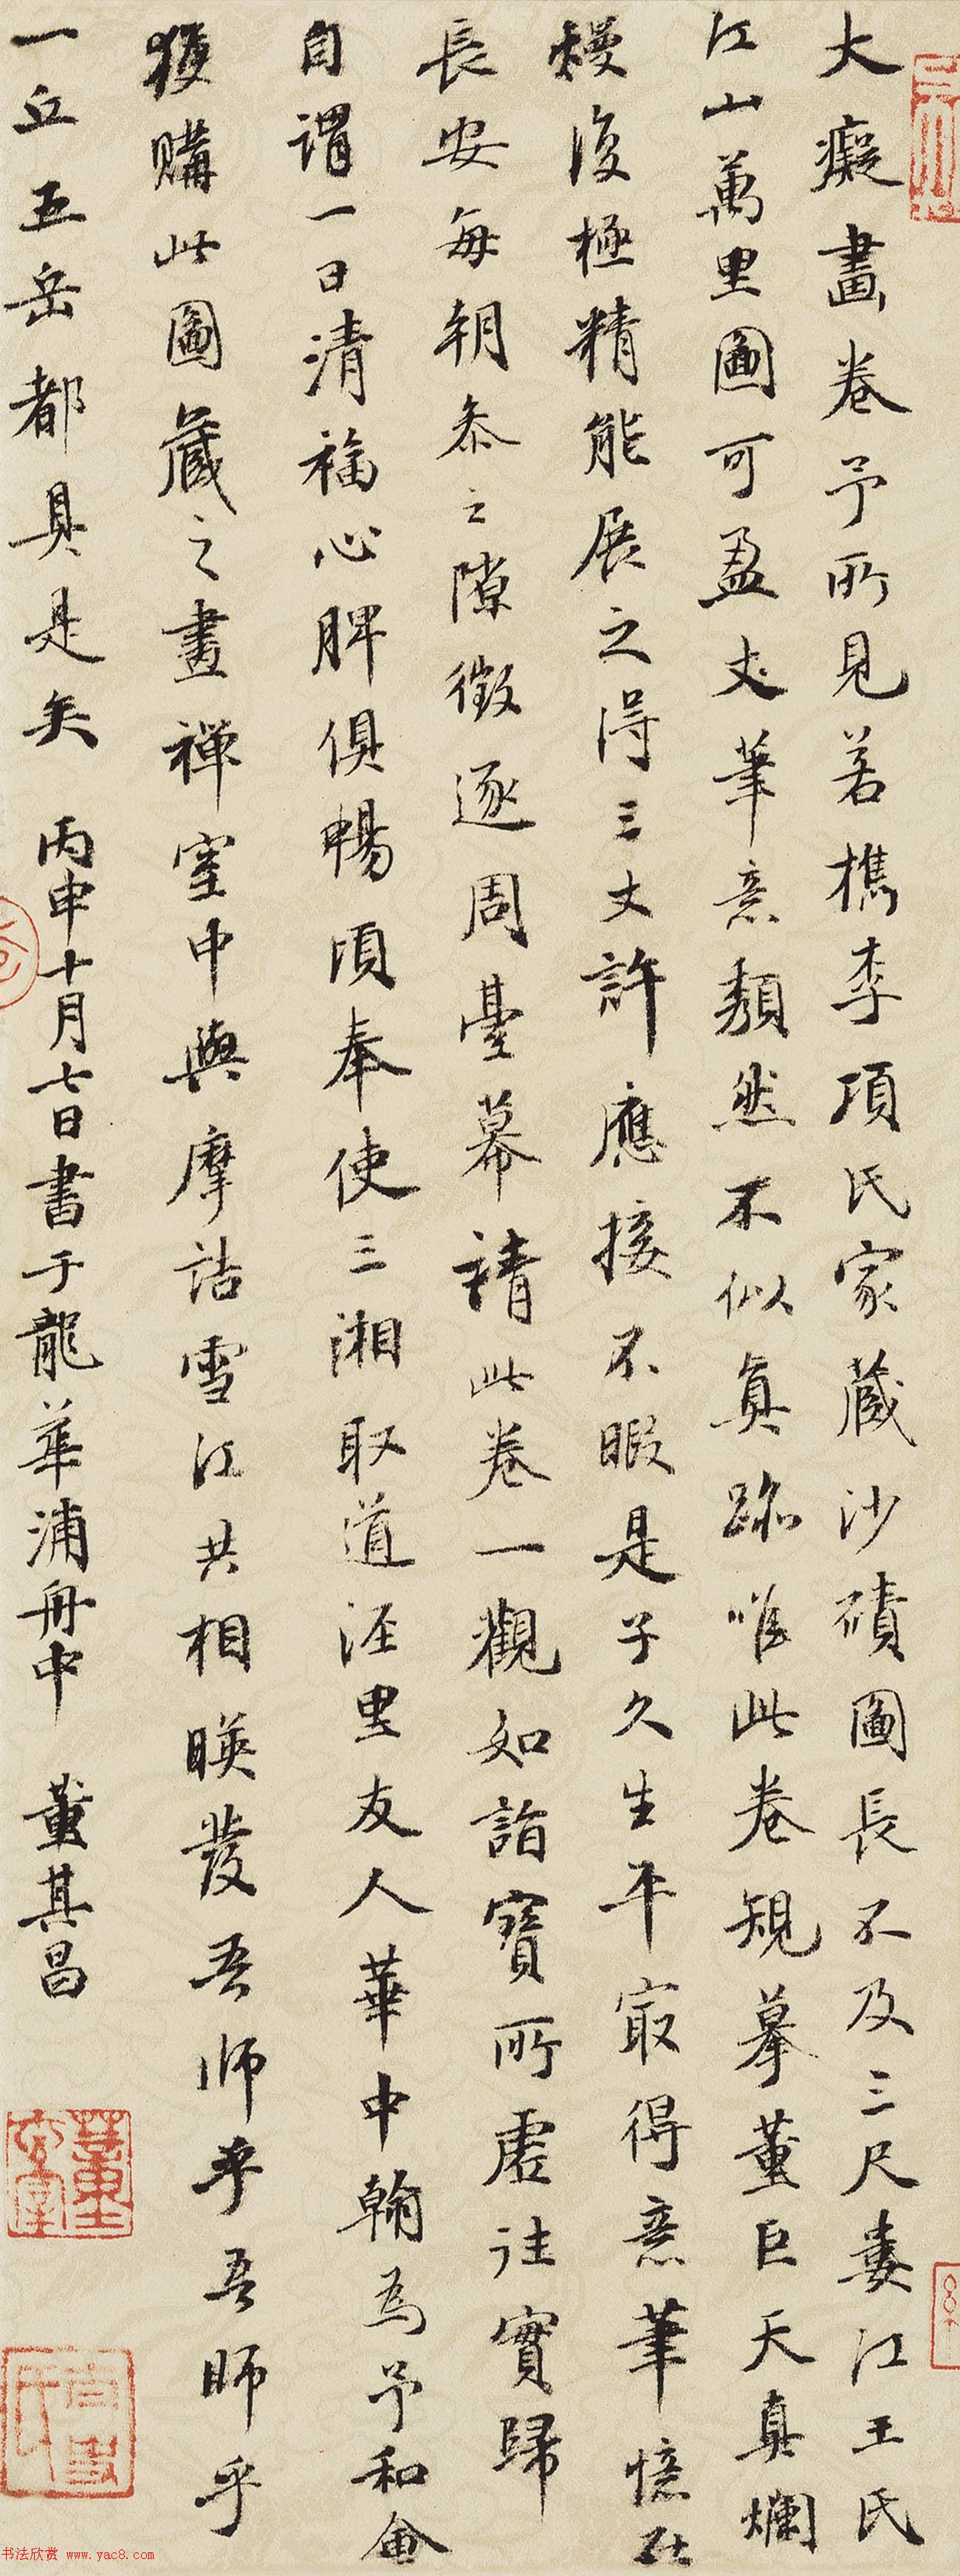 大癡畫卷予所見若檇李項氏家藏沙磧圖長不及三尺婁江王氏
江山萬里圖可盈丈筆意頹然不似真跡唯此卷規摹董巨天真爛
熳復極精能展之得三丈許應接不暇是子久生平㝡得意筆憶在
長安每朝叅之隙徵逐周臺幕請此卷一觀如詣寶所虛往實歸
自謂一日清福心脾俱暢頃奉使三湘取道涇里友人華中翰為予和會
獲購此圖藏之畫禪室中與摩詰雪江共相暎發吾師乎吾師乎
一丘五岳都具是矣 丙申十月七日書于龍華浦舟中 董其昌
书法欣赏 www.yac8.com